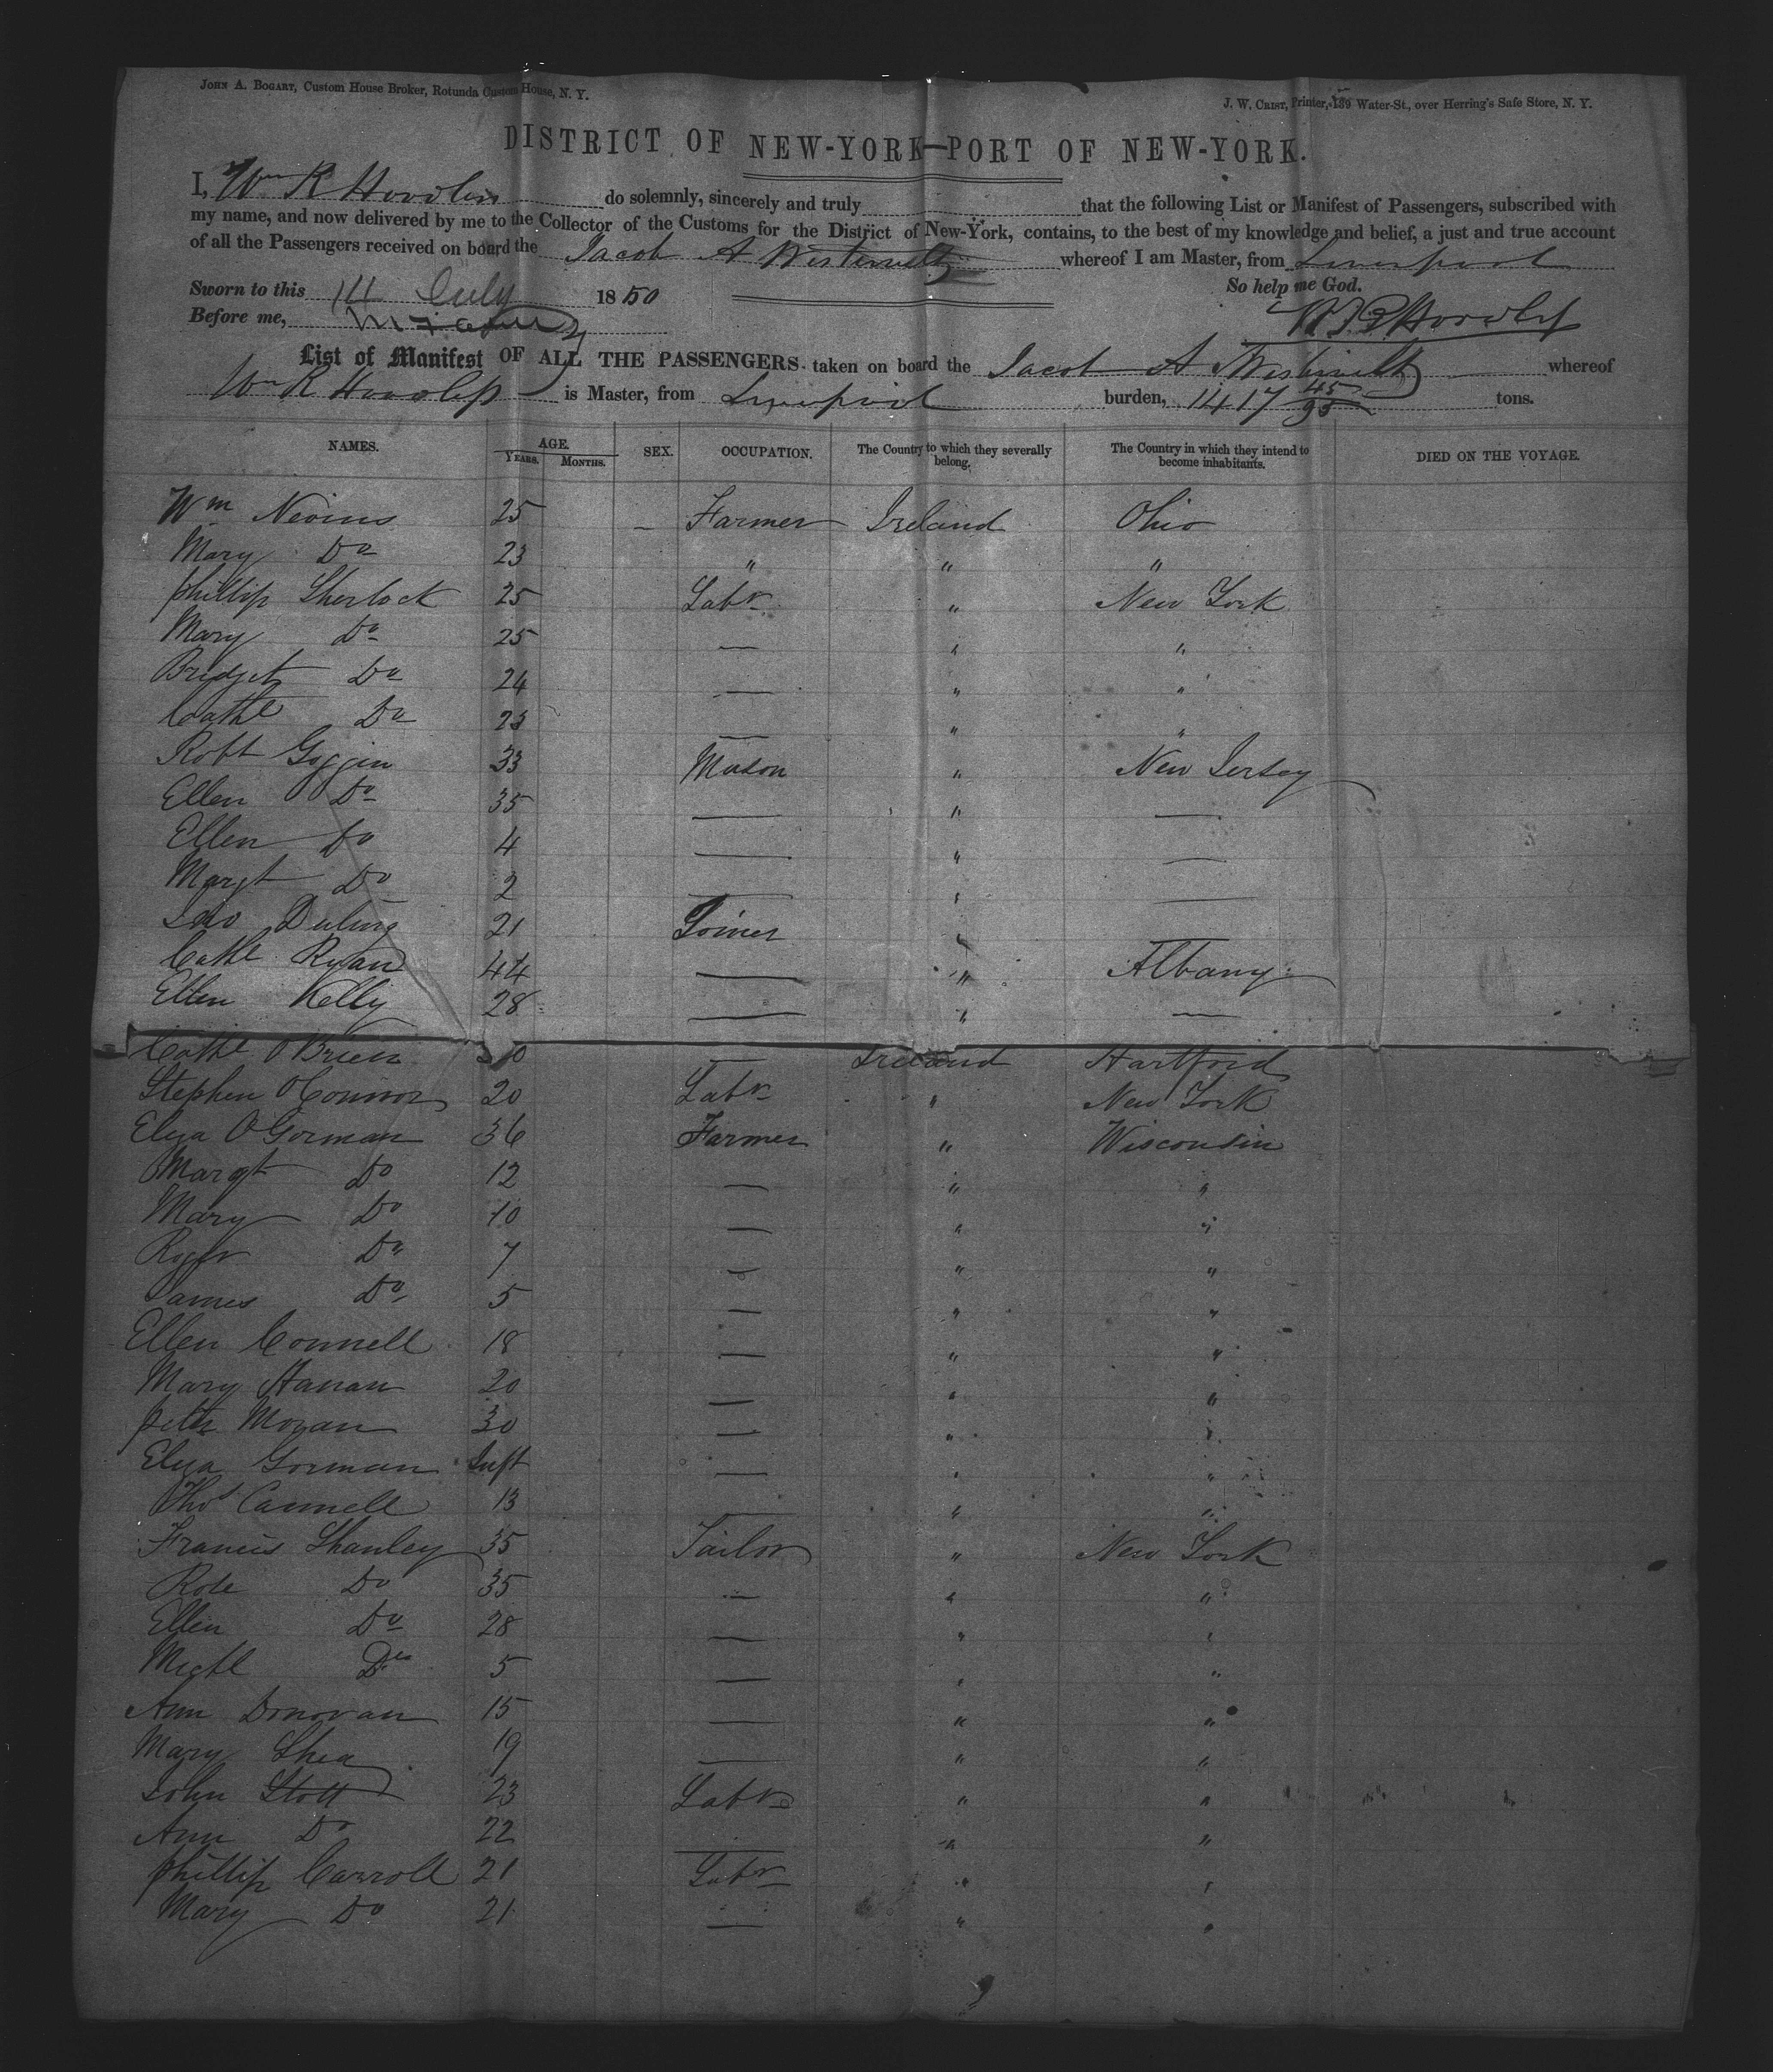 JOHN A. BOGART, Custom House Broker, Rotunda Custom House, N. Y.
J. W. CRIST, Printer, 139 Water-St., over Herring's Safe Store, N. Y.
DISTRICT OF NEW-YORK—PORT OF NEW-YORK.
I, Wm R Hoodless do solemnly, sincerely and truly that the following List or Manifest of Passengers, subscribed with
my name, and now delivered by me to the Collector of the Customs for the District of New-York, contains, to the best of my knowledge and belief, a just and true account
of all the Passengers received on board the Jacob A Westervelt whereof I am Master, from Liverpool
Sworn to this 14 July 1850 So help me God.
Before me,
List of Manifest OF ALL THE PASSENGERS taken on board the Jacob A Westervelt whereof
Wm R is Master, from Liverpool burden, 1417 45/95 tons.
NAMES. AGE. YEARS. MONTHS. SEX. OCCUPATION. The Country to which they severally belong. The Country in which they intend to become inhabitants. DIED ON THE VOYAGE.
Wm Nevins 25 – Farmer Ireland Ohio
Mary Do 23 " " "
Phillip Sherlock 25 Labr " New York
Mary Do 25 — " "
Bridget Do 24 — " "
Cathe Do 23 — " "
Robt Goggin 33 Mason " New Jersey
Ellen Do 35 — " —
Ellen Do 4 — " —
Margt Do 2 — " —
21 Joiner "
Cathe Ryan 44 — " Albany
Ellen Kelly 28 — " —
Cathe O'Brien — Ireland Hartford
Stephen O'Connor 20 Labr " New York
Eliza O'Gorman 36 Farmer " Wisconsin
Margt Do 12 — " "
Mary Do 10 — " "
Roger Do 7 — " "
James Do 5 — " "
Ellen Connell 18 — " "
Mary Hanan 20 — " "
Peter Moran 30 — " "
Eliza Gorman Inft — " "
Thos Cannell 13 — " "
Francis Shanley 35 Tailor " New York
Rose Do 35 — " "
Ellen Do 28 — " "
Michl Do 5 — " "
Ann Donovan 15 — " "
Mary Shea 19 — " "
John Stott 23 Labr " "
Ann Do 22 — " "
Phillip Carroll 21 Labr " "
Mary Do 21 — " "